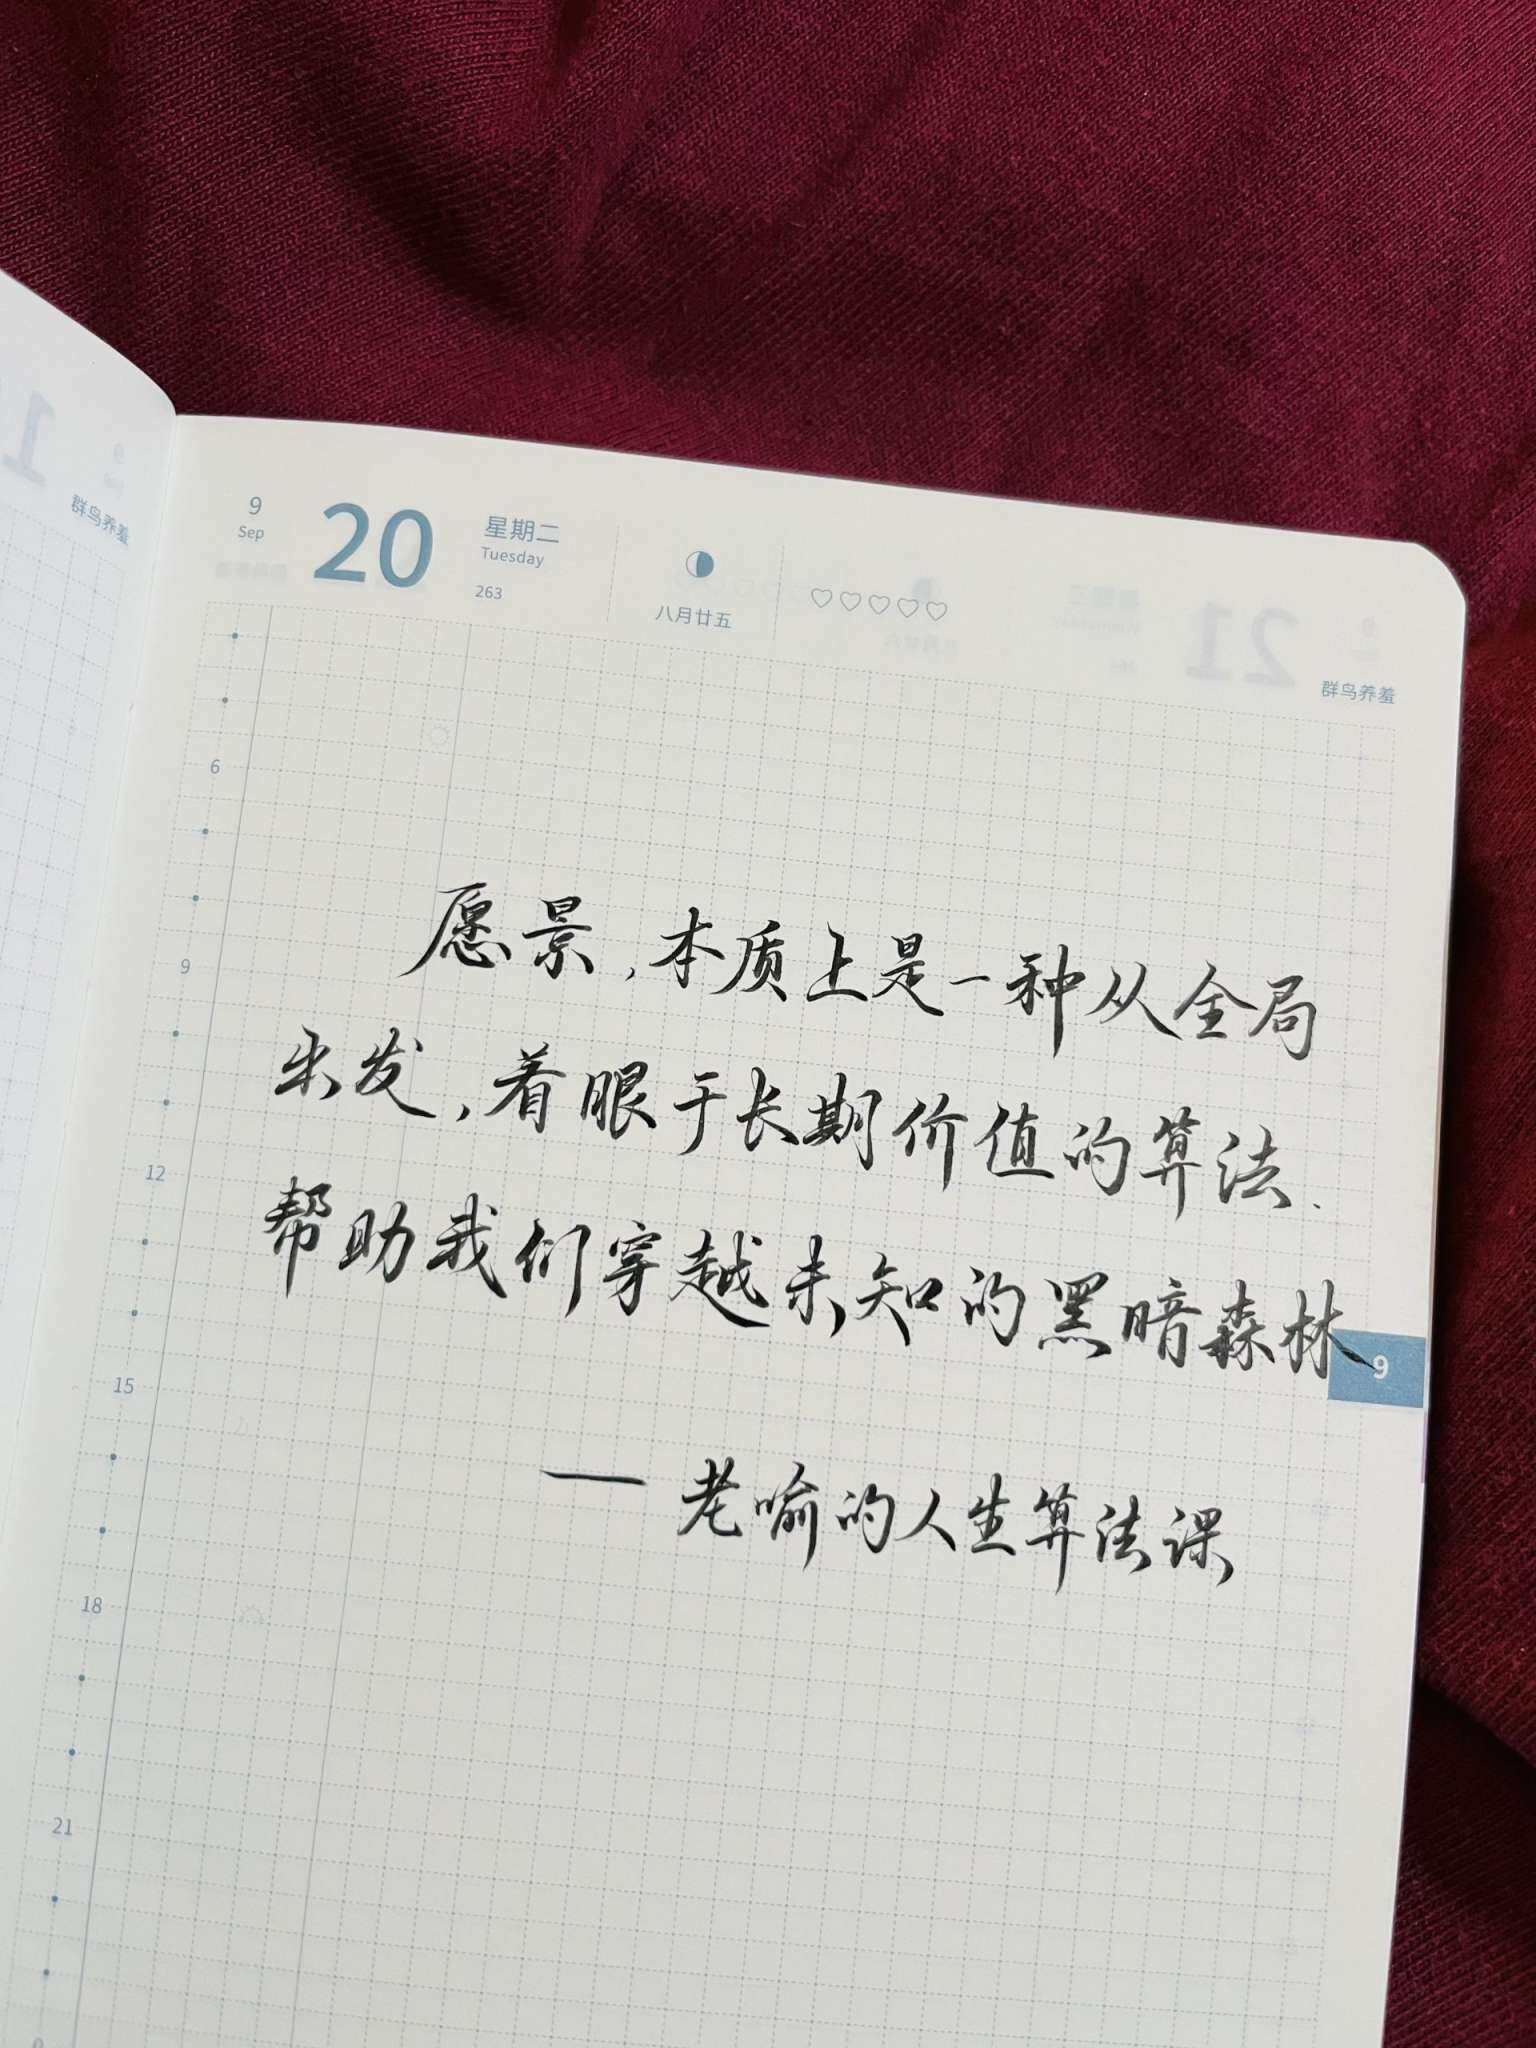 9
Sep
20
星期二
Tuesday
263
八月廿五
群鸟养羞
群鸟养羞
6
9
12
15
18
21
愿景,本质上是一种从全局
出发,着眼于长期价值的算法、
帮助我们穿越未知的黑暗森林
9
— 老喻的人生算法课